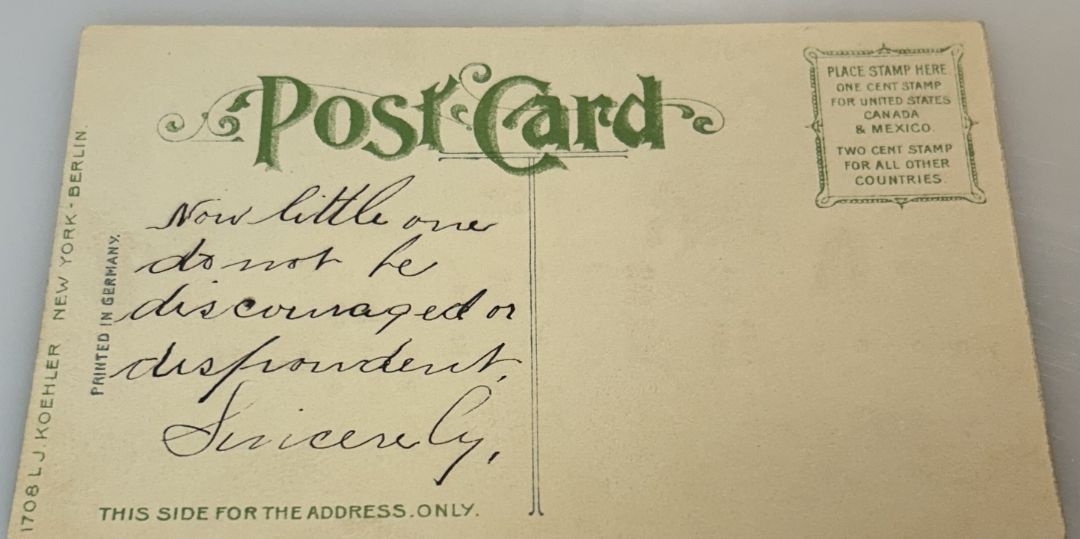 Post Card
PLACE STAMP HERE
ONE CENT STAMP
FOR UNITED STATES
CANADA
& MEXICO.
TWO CENT STAMP
FOR ALL OTHER
COUNTRIES.
Now little one
do not be
discouraged or
dispondent.
Sincerely,
THIS SIDE FOR THE ADDRESS.ONLY.
PRINTED IN GERMANY.
1708 L J. KOEHLER NEW YORK - BERLIN.